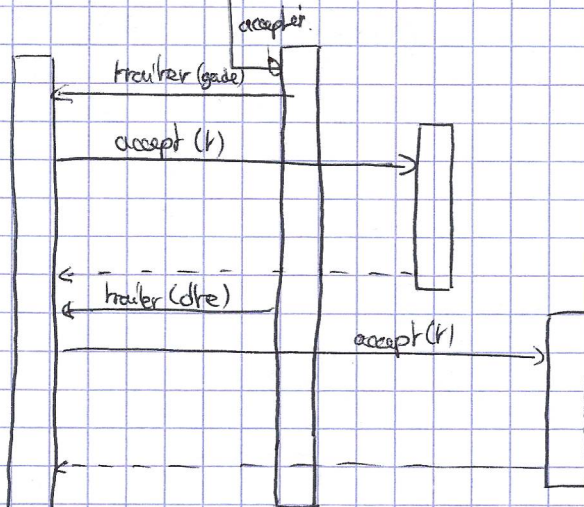 accepter.
traiter (gade)
accept (r)
traiter (dte)
accept (r)